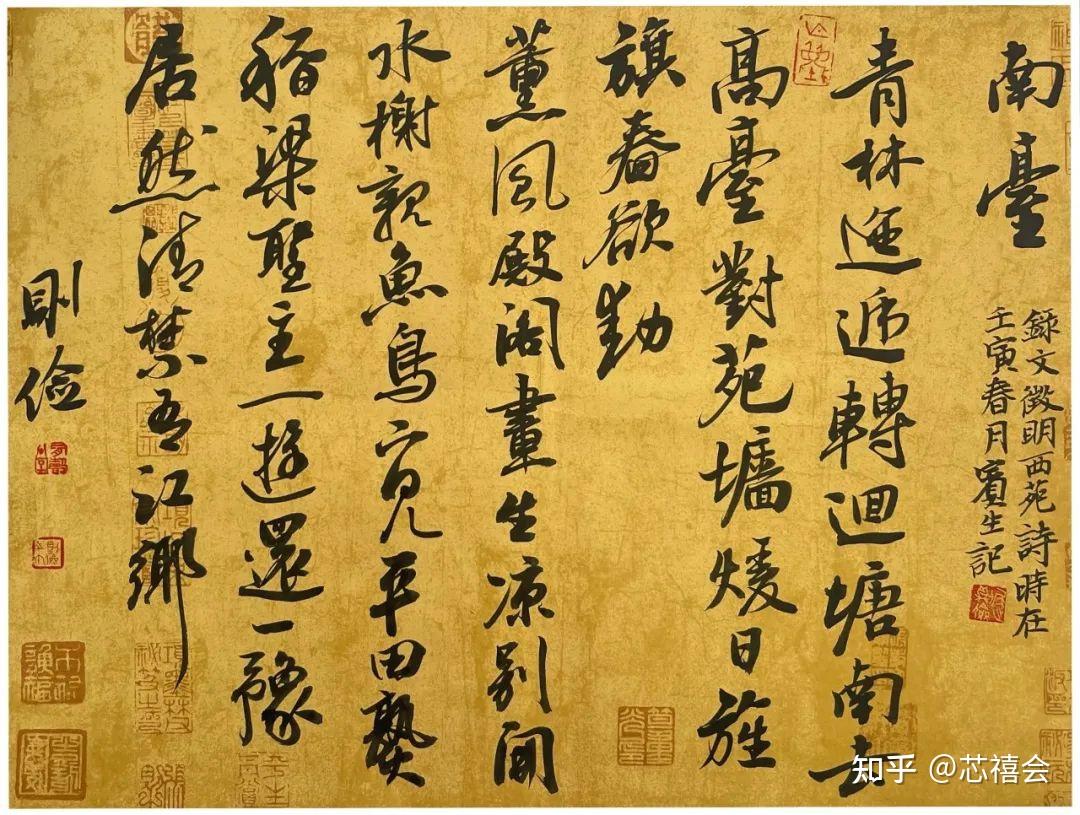 南臺
録文徵明西苑詩時在
壬寅春月賓生記
青林迤遞轉迴塘南去
高臺對苑墻煖日旌
旗春欲動
薰風殿閣晝生凉别開
水榭親魚鳥下見平田熟
稻粱聖主一遊還一豫
居然清禁有江鄉
則儉
知乎 @芯禧会